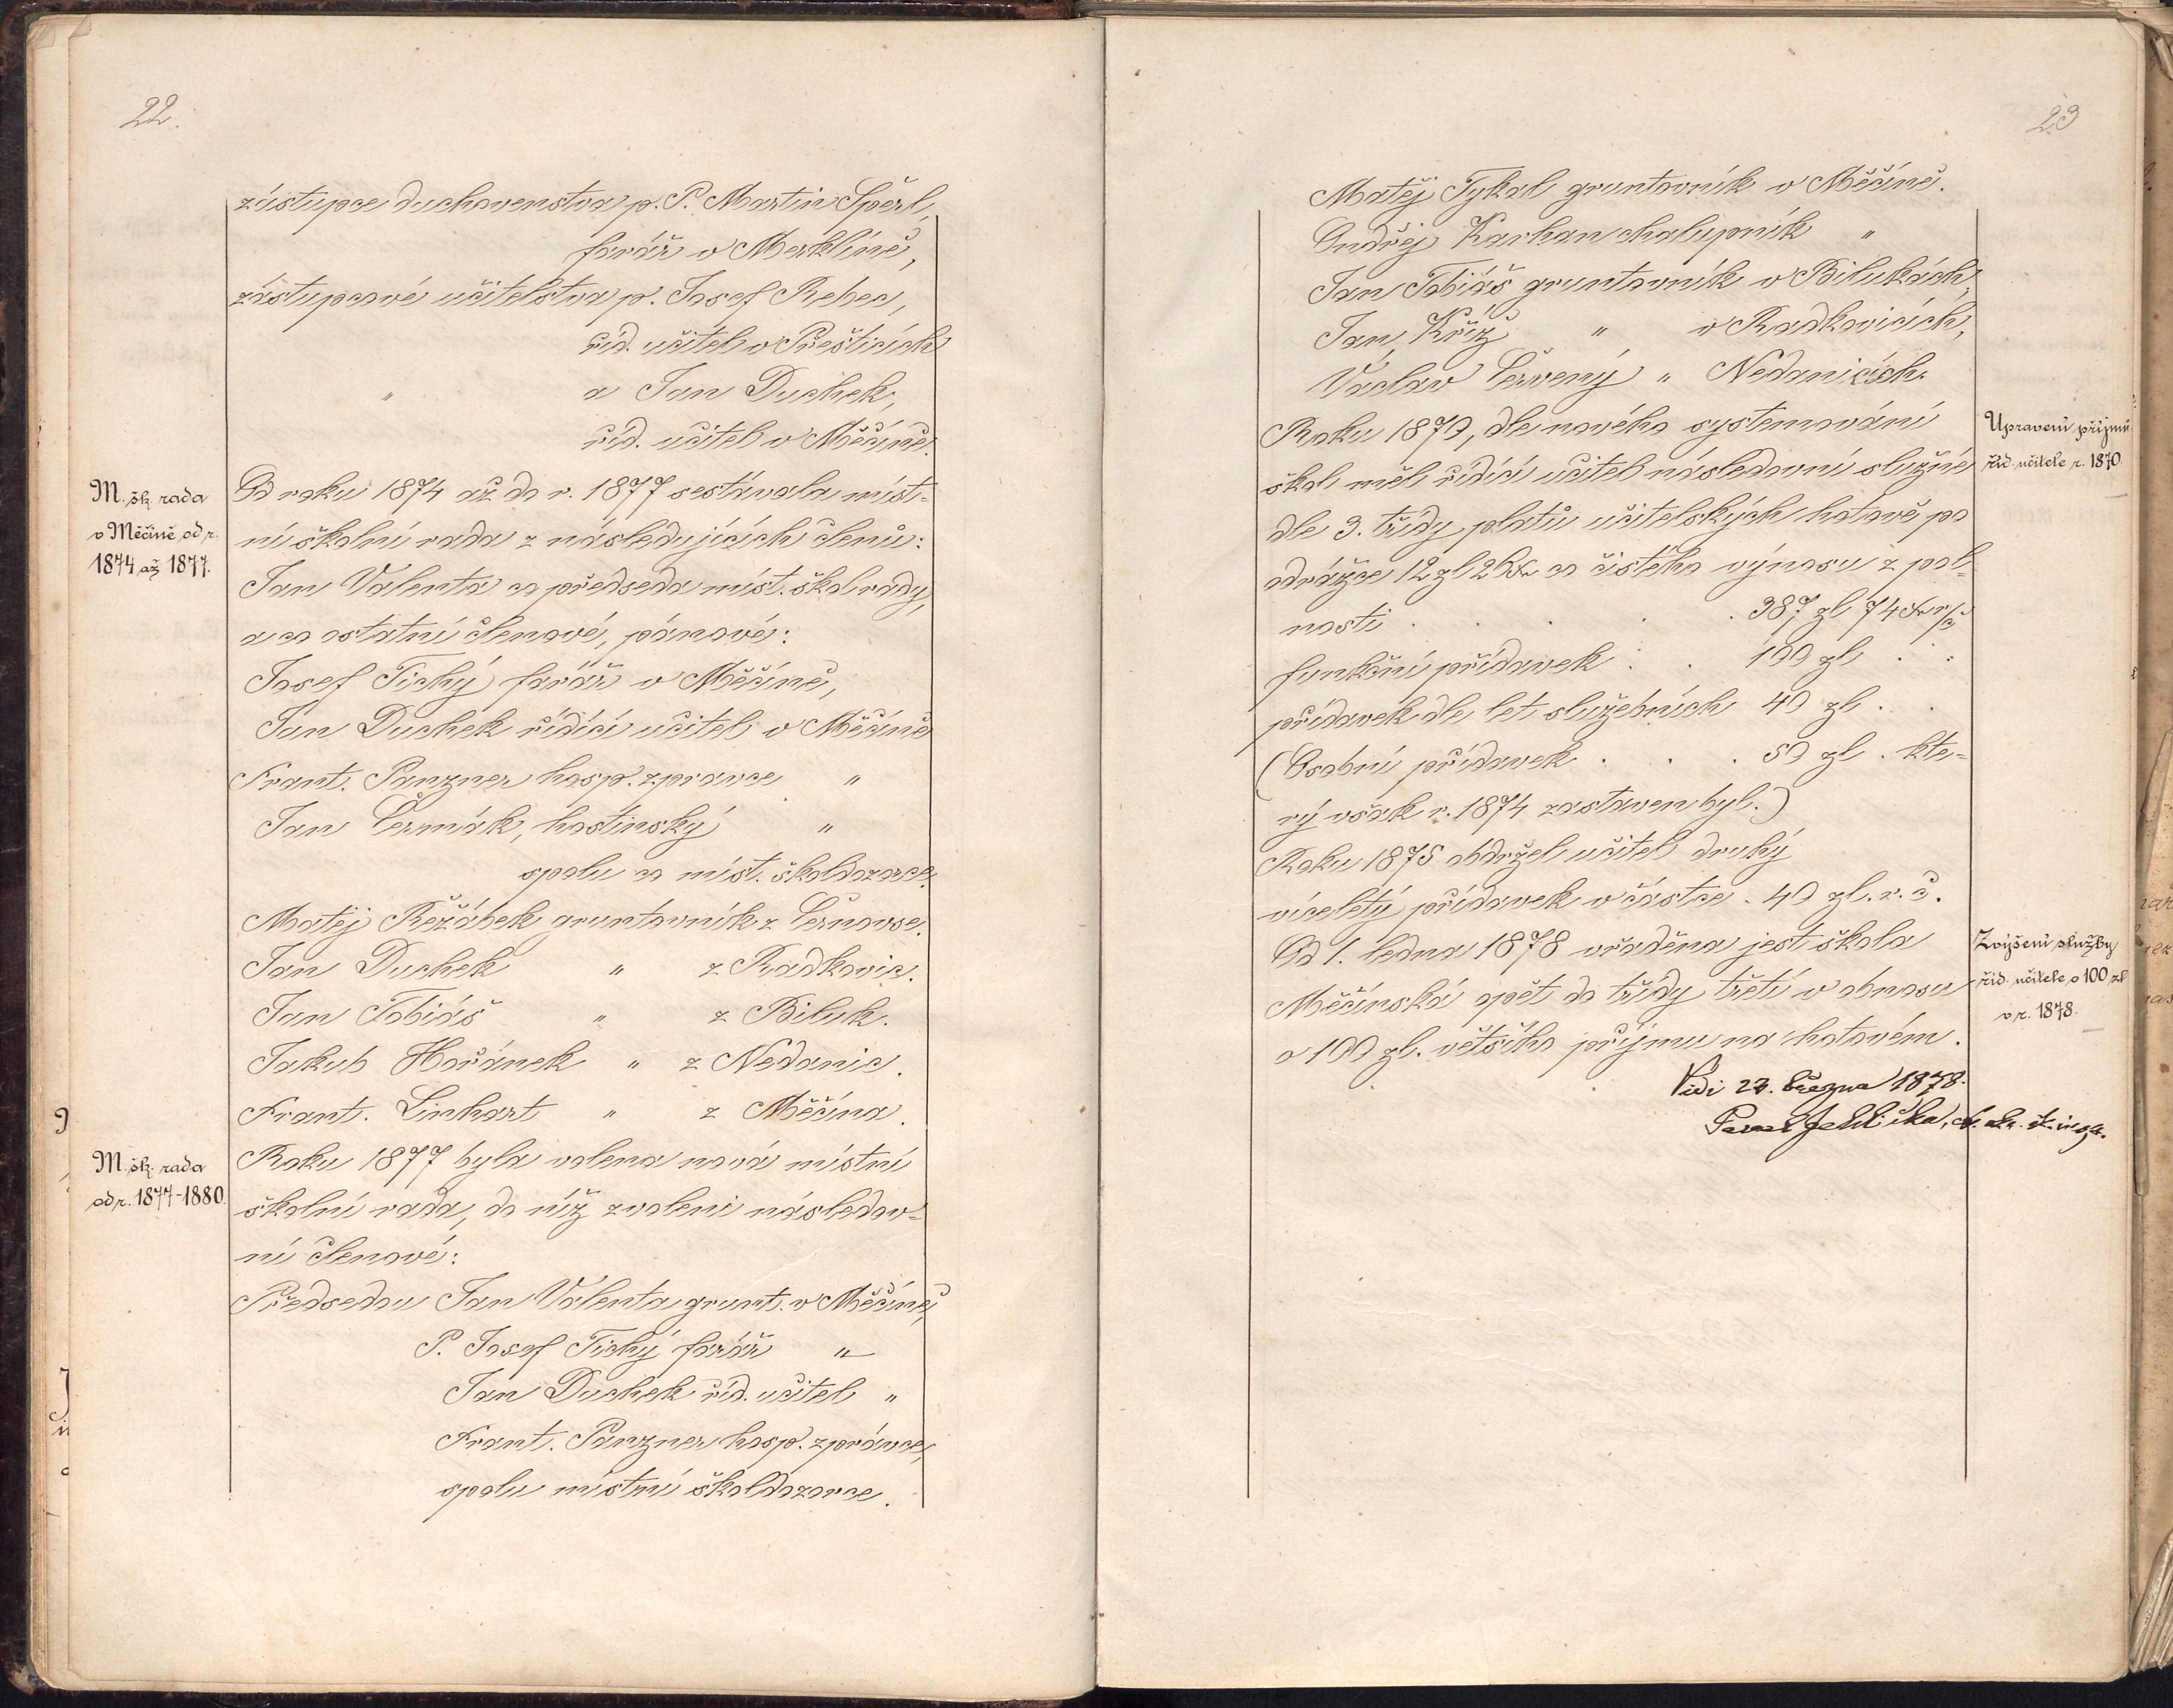 22.
zástupce duchovenstva p. P. Martin Šperl,
farář v Merklíně,
zástupcové učitelstva p. Josef Rebec,
říd. učitel v Přešticích
„ a Jan Duchek,
říd. učitel v Měčíně.
M. šk. rada
v Měčíně od r.
1874 až 1877.
Od roku 1874 až do r. 1877 sestávala míst-
ní školní rada z následujících členů:
Jan Valenta co předseda míst. škol. rady,
a co ostatní členové, pánové:
Josef Tichý farář v Měčíně,
Jan Duchek řídící učitel v Měčíně
Frant. Panzner hosp. zpravce „
Jan Čermák, hostinský „
spolu co míst. školdozorce.
Matěj Řežábek gruntovník z Černovse.
Jan Duchek „ z Radkovic.
Jan Tobiáš „ z Biluk.
Jakub Hořánek „ z Nedanic.
Frant. Linhart „ z Měčína.
M. šk. rada
od r. 1877-1880.
Roku 1877 byla volena nová místní
školní rada, do níž zvoleni následov-
ní členové:
Předsedou Jan Valenta grunt. v Měčíně,
P. Josef Tichý farář „
Jan Duchek říd. učitel „
Frant. Panzner hosp. zprávce,
spolu místní školdozorce.
23
Matěj Tykal gruntovník v Měčíně.
Ondřej Karhan chalupník „
Jan Tobiáš gruntovník v Bilukách,
Jan Kříž „ v Radkovicích,
Václav Červený „ Nedanicích.
Upravení příjmů
říd. učitele r. 1870.
Roku 1870, dle nového systemování
škol měl řídící učitel následovní služné
dle 3. třídy platů učitelských hotově po
odrážce 12 zl 26 kr co čistého výnosu z pol-
nosti . . . . 387 zl 74 kr r/č
funkční přídavek . . 100 zl . .
přídavek dle let služebních 40 zl . .
(Osobní přídavek . . . 50 zl . kte-
rý však r. 1874 zastaven byl.)
Roku 1875 obdržel učitel druhý
víceletý přídavek v částce . 40 zl. r. č.
Zvýšení služby
říd. učitele o 100 zl
v r. 1878.
Od 1. ledna 1878 vřaděna jest škola
Měčínská opět do třídy třetí v obnosu
o 100 zl. většího příjmu na hotovém.
Vidi 27. března 1878.
Jehlička, šk. insp.